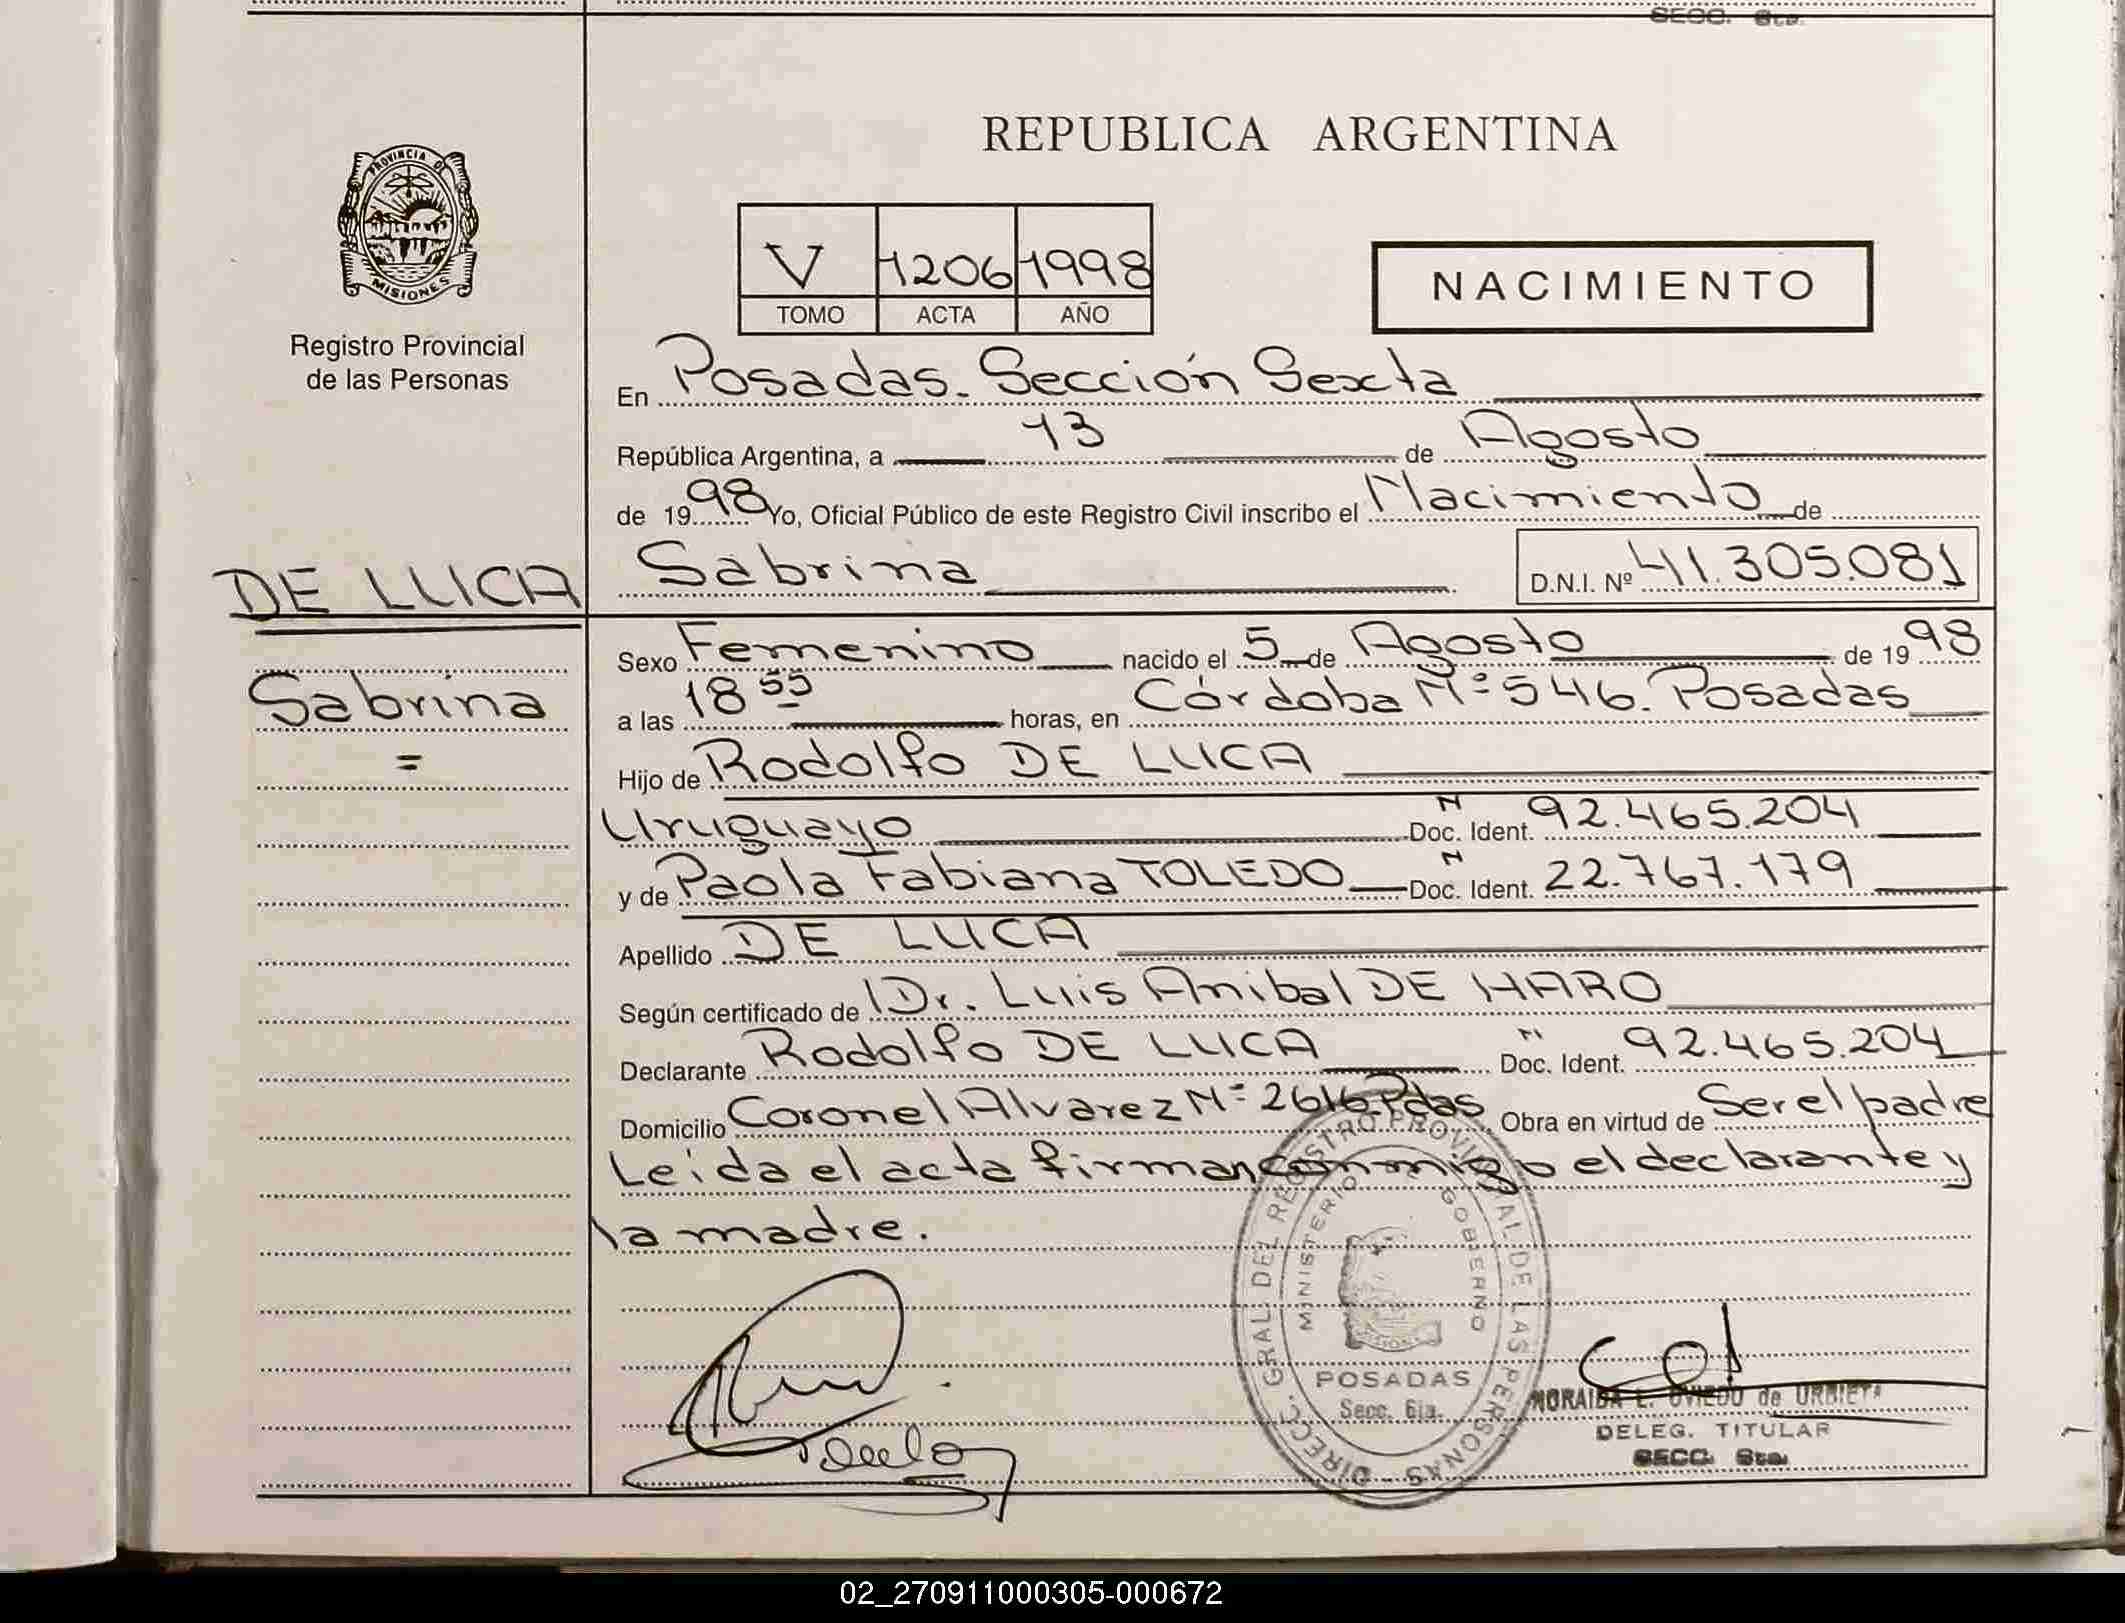 SECC. 6ta.
REPUBLICA ARGENTINA
PROVINCIA DE
MISIONES
Registro Provincial
de las Personas
V 1206 1998
TOMO ACTA AÑO
NACIMIENTO
En Posadas. Sección Sexta
República Argentina, a 13 de Agosto
de 1998 Yo, Oficial Público de este Registro Civil inscribo el Nacimiento de
Sabrina D.N.I. Nº 41.305.081
DE LUCA
Sabrina
=
Sexo Femenino nacido el 5 de Agosto de 1998
a las 18 55 horas, en Córdoba Nº 546. Posadas
Hijo de Rodolfo DE LUCA
Uruguayo Doc. Ident. N 92.465.204
y de Paola Fabiana TOLEDO Doc. Ident. N 22.767.179
Apellido DE LUCA
Según certificado de Dr. Luis Anibal DE HARO
Declarante Rodolfo DE LUCA Doc. Ident. N 92.465.204
Domicilio Coronel Alvarez Nº 2616 Pdas Obra en virtud de Ser el padre
Leida el acta firman conmigo el declarante y
la madre.
DIREC. GRAL DEL REGISTRO PROVINCIAL DE LAS PERSONAS
MINISTERIO GOBIERNO
POSADAS
Secc. 6ta.
NORAIDA L. OVIEDO de URBIETA
DELEG. TITULAR
SECC. 6ta.
02_270911000305-000672